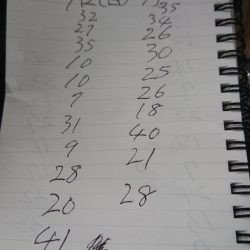 32 35
27 34
35 26
10 30
10 25
7 26
31 18
9 40
28 21
20 28
41